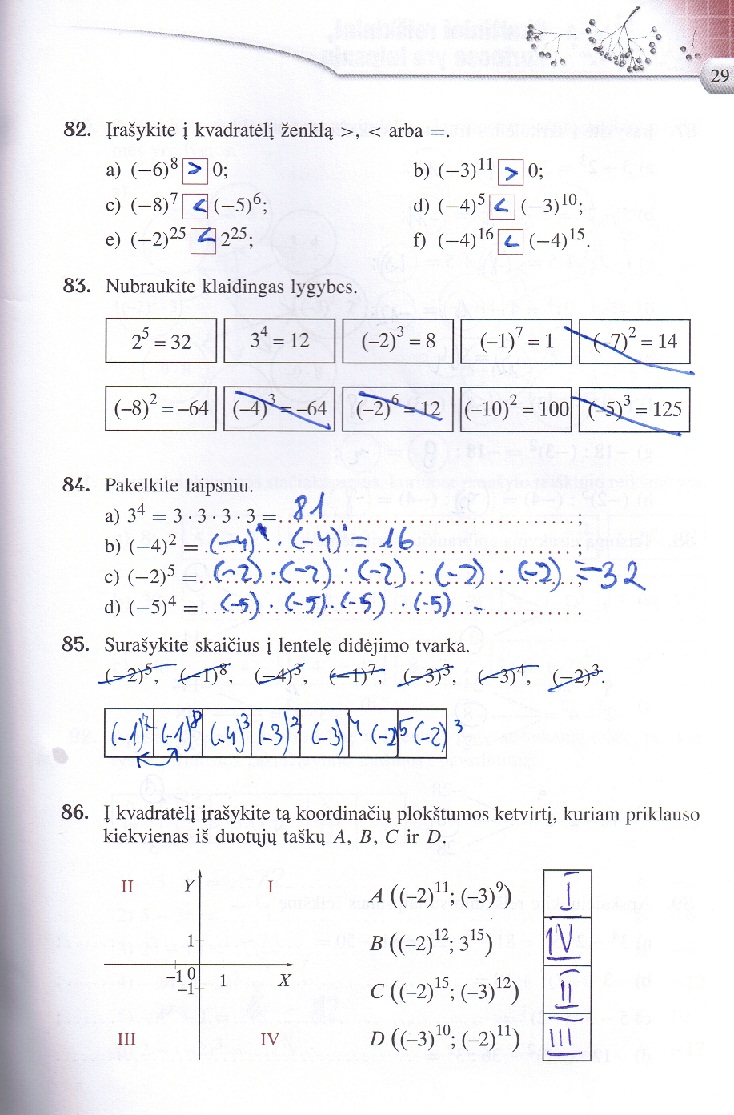 29
82. Įrašykite į kvadratėlį ženklą >, < arba =.
a) (−6)⁸ > 0; b) (−3)¹¹ > 0;
c) (−8)⁷ < (−5)⁶; d) (−4)⁵ < (−3)¹⁰;
e) (−2)²⁵ < 2²⁵; f) (−4)¹⁶ < (−4)¹⁵.
83. Nubraukite klaidingas lygybes.
2⁵ = 32 3⁴ = 12 (−2)³ = 8 (−1)⁷ = 1 (−7)² = 14
(−8)² = −64 (−4)³ = −64 (−2)⁶ = 12 (−10)² = 100 (−5)³ = 125
84. Pakelkite laipsniu.
a) 3⁴ = 3 · 3 · 3 · 3 = 81
b) (−4)² = (−4) · (−4) = 16
c) (−2)⁵ = (−2) · (−2) · (−2) · (−2) · (−2) = −32
d) (−5)⁴ = (−5) · (−5) · (−5) · (−5)
85. Surašykite skaičius į lentelę didėjimo tvarka.
(−2)⁵, (−1)⁸, (−4)³, (−1)⁷, (−3)³, (−3)⁴, (−2)³.
(−1)⁷ (−1)⁸ (−4)³ (−3)³ (−3)⁴ (−2)⁵ (−2)³
86. Į kvadratėlį įrašykite tą koordinačių plokštumos ketvirtį, kuriam priklauso
kiekvienas iš duotųjų taškų A, B, C ir D.
II Y I
1
−1 0 1 X
−1
III IV
A ((−2)¹¹; (−3)⁹) I
B ((−2)¹²; 3¹⁵) IV
C ((−2)¹⁵; (−3)¹²) II
D ((−3)¹⁰; (−2)¹¹) III